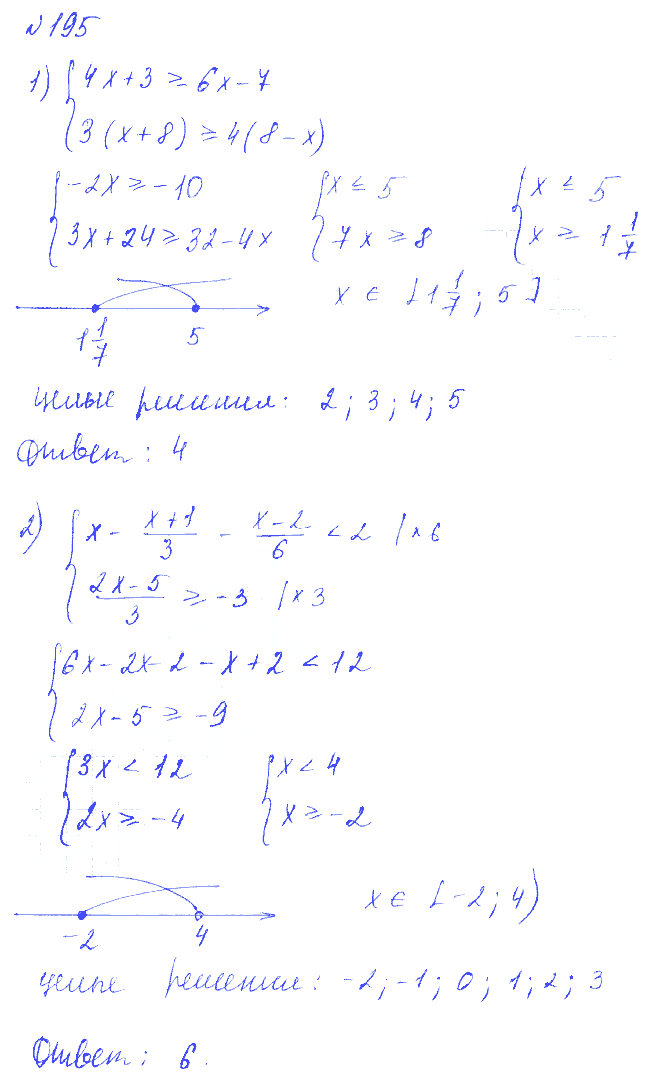 №195
1) { 4x+3 ≥ 6x-7
3(x+8) ≥ 4(8-x)
{ -2x ≥ -10 { x ≤ 5 { x ≤ 5
3x+24 ≥ 32-4x 7x ≥ 8 x ≥ 1 1/7
x ∈ [1 1/7; 5]
1 1/7 5
целые решения: 2; 3; 4; 5
Ответ: 4
2) { x - (x+1)/3 - (x-2)/6 < 2 /×6
(2x-5)/3 ≥ -3 /×3
{ 6x-2x-2-x+2 < 12
2x-5 ≥ -9
{ 3x < 12 { x < 4
2x ≥ -4 x ≥ -2
x ∈ [-2; 4)
-2 4
целые решения: -2; -1; 0; 1; 2; 3
Ответ: 6.